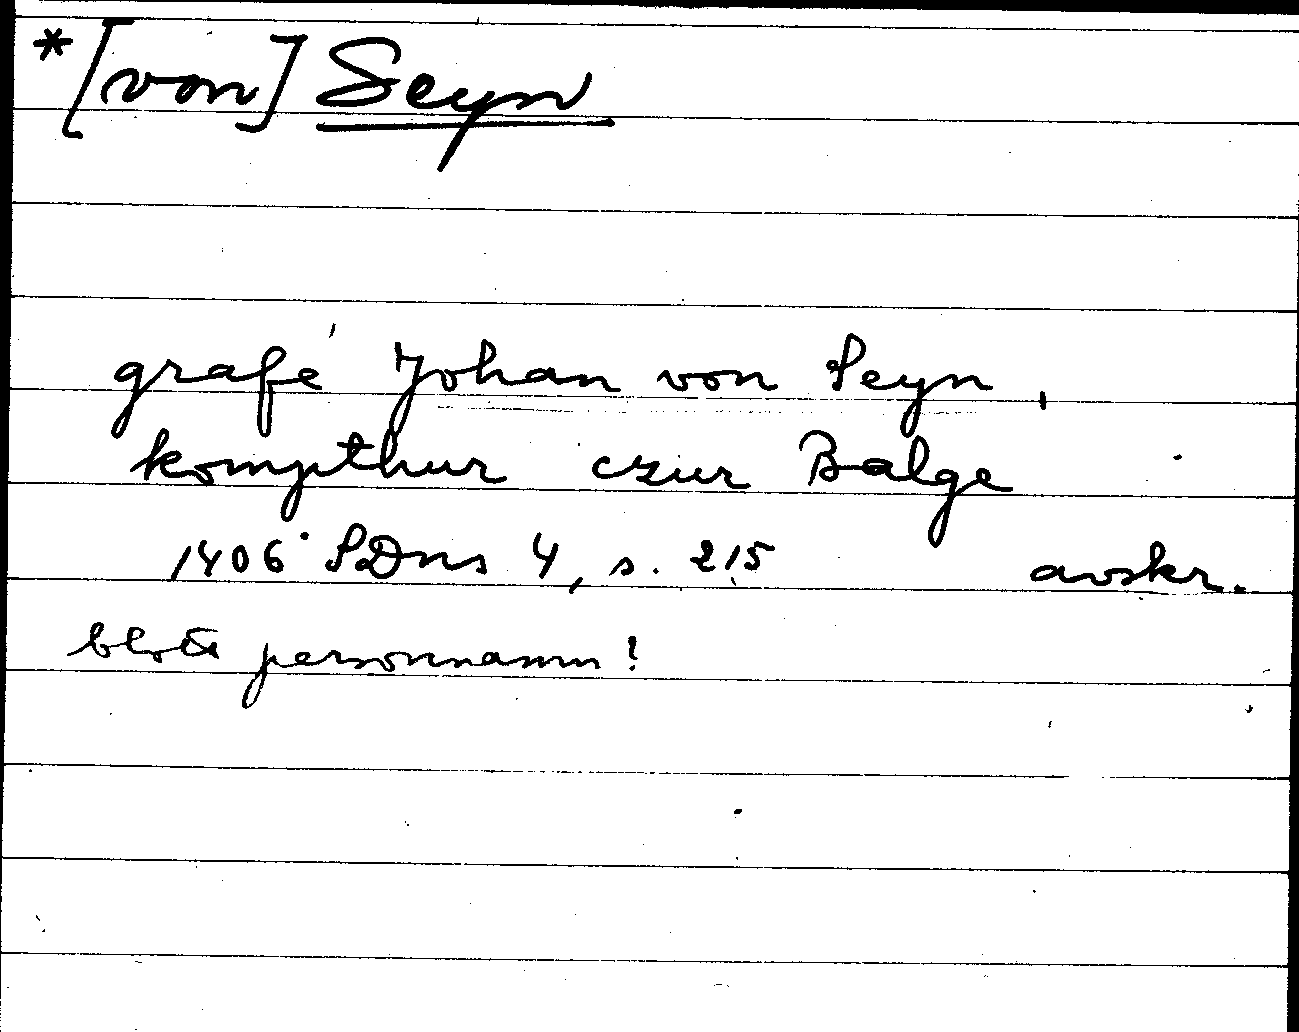 *[von] Seyn
grafe Johan von Seyn,
kompthur czur Balge
1406 SDns 4, s. 215 avskr.
blott personnamn!